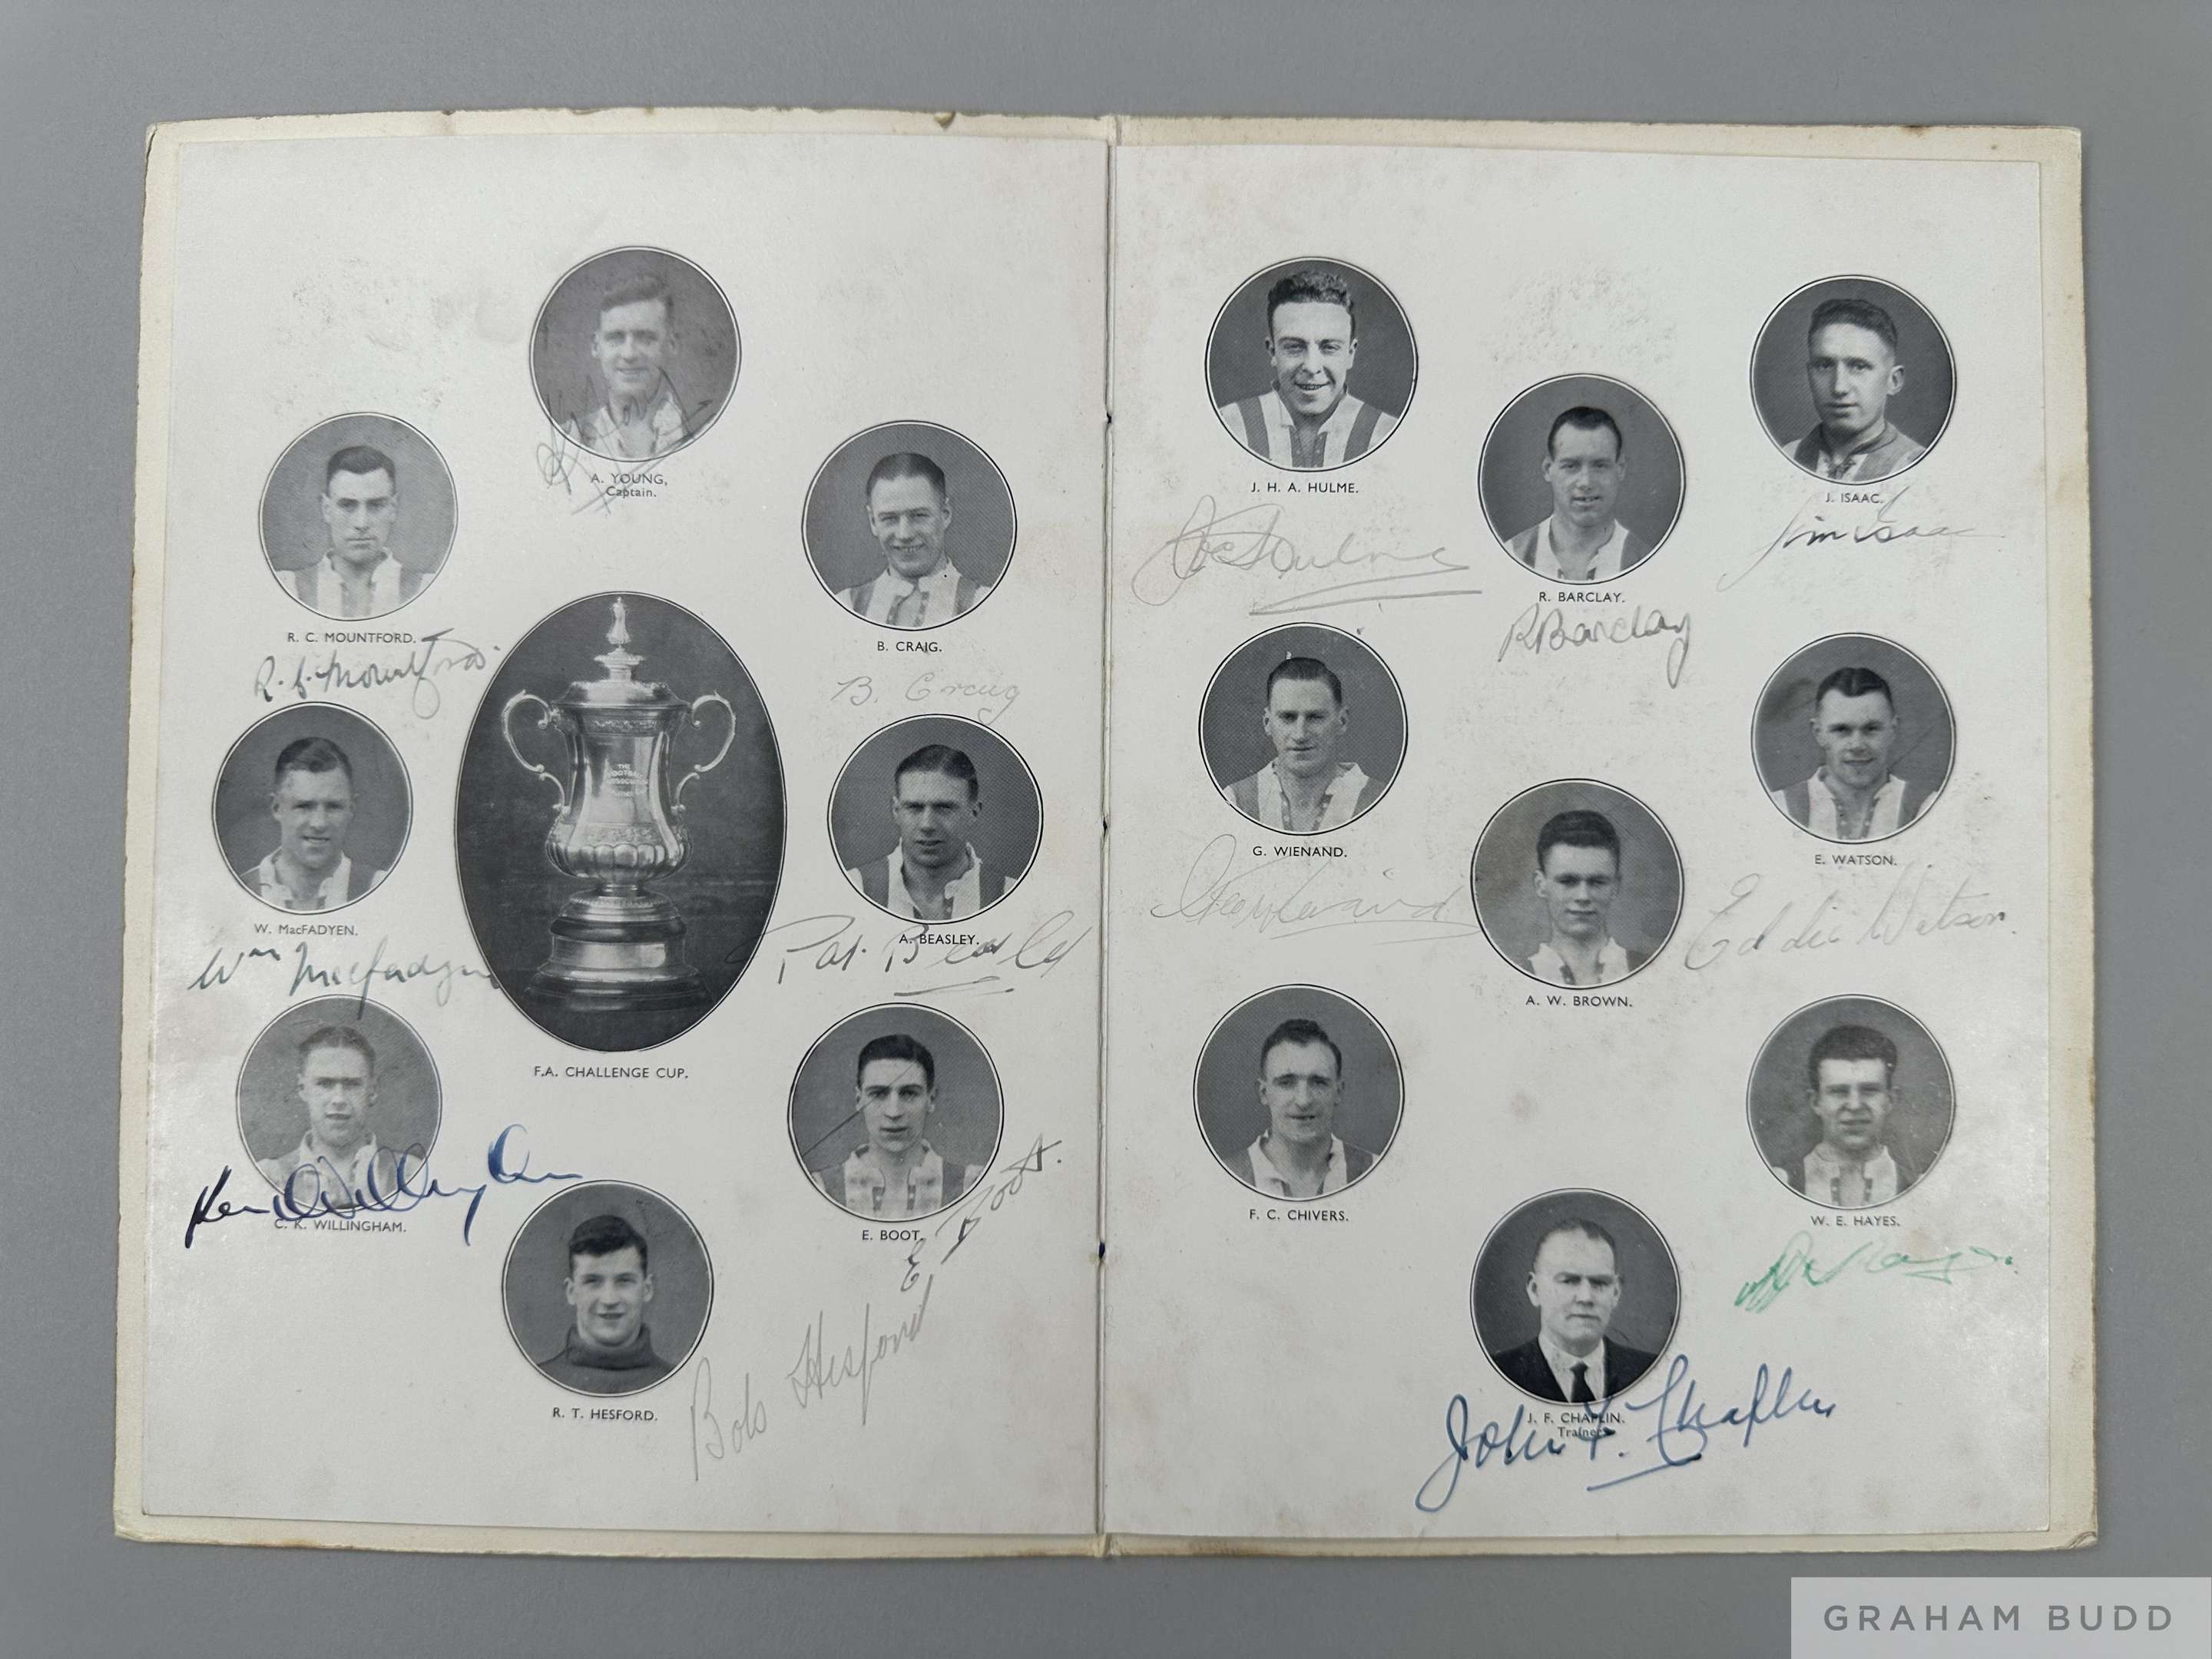 A. YOUNG,
Captain.
R. C. MOUNTFORD.
R. C. Mountford.
B. CRAIG.
B. Craig
THE
FOOTBALL
ASSOCIATION
W. MacFADYEN.
Wm Macfadyen
A. BEASLEY.
Pat. Beasley
F.A. CHALLENGE CUP.
C. K. WILLINGHAM.
Ken Willingham
E. BOOT.
E Boot.
R. T. HESFORD.
Bob Hesford
J. H. A. HULME.
Joe Hulme
R. BARCLAY.
R Barclay
J. ISAAC.
Jim Isaac
G. WIENAND.
E. WATSON.
Eddie Watson.
A. W. BROWN.
F. C. CHIVERS.
W. E. HAYES.
J. F. CHAPLIN.
Trainer.
John F. Chaplin
GRAHAM BUDD